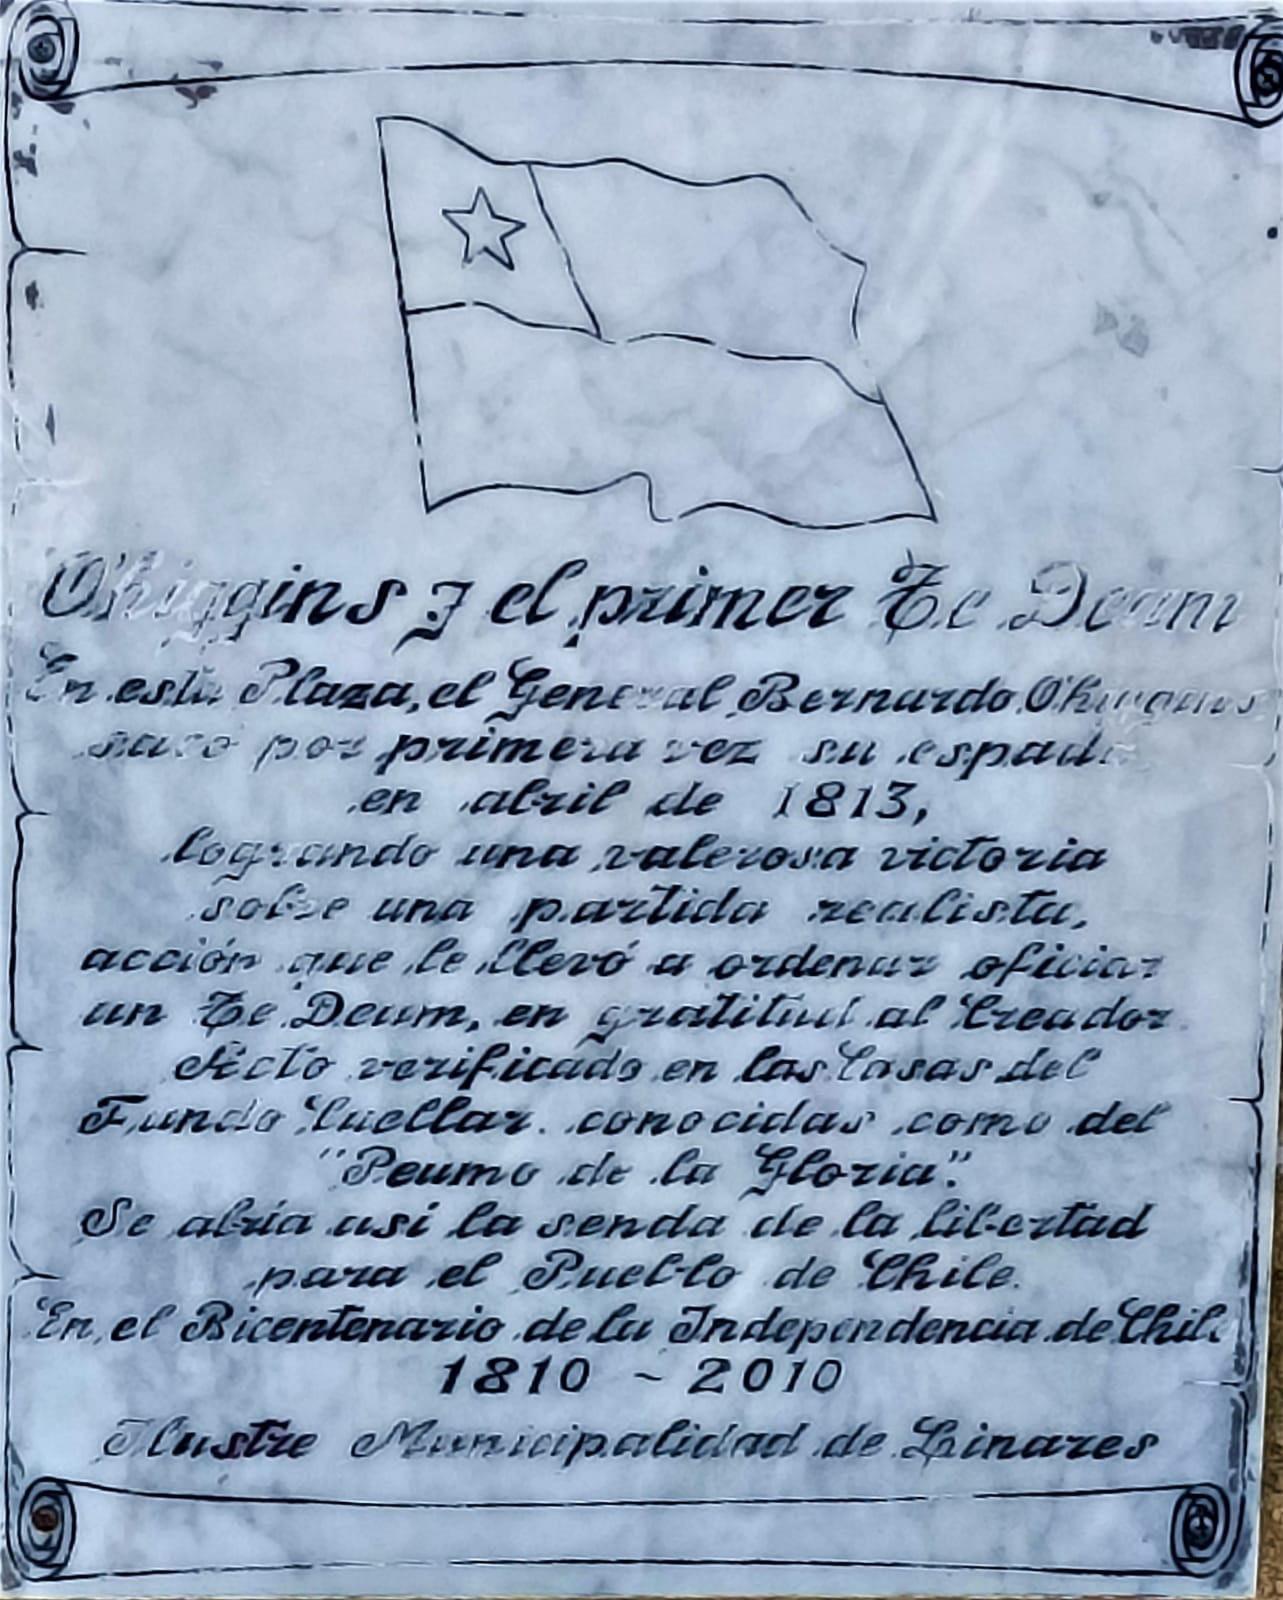 O'higgins y el primer Te Deum
En esta Plaza, el General Bernardo O'higgins
sacó por primera vez su espada
en abril de 1813,
logrando una valerosa victoria
sobre una partida realista,
acción que le llevó a ordenar oficiar
un Te Deum, en gratitud al Creador
Acto verificado en las Casas del
Fundo Cuellar. conocidas como del
"Peumo de la Gloria".
Se abría así la senda de la libertad
para el Pueblo de Chile.
En el Bicentenario de la Independencia de Chile
1810 - 2010
Ilustre Municipalidad de Linares